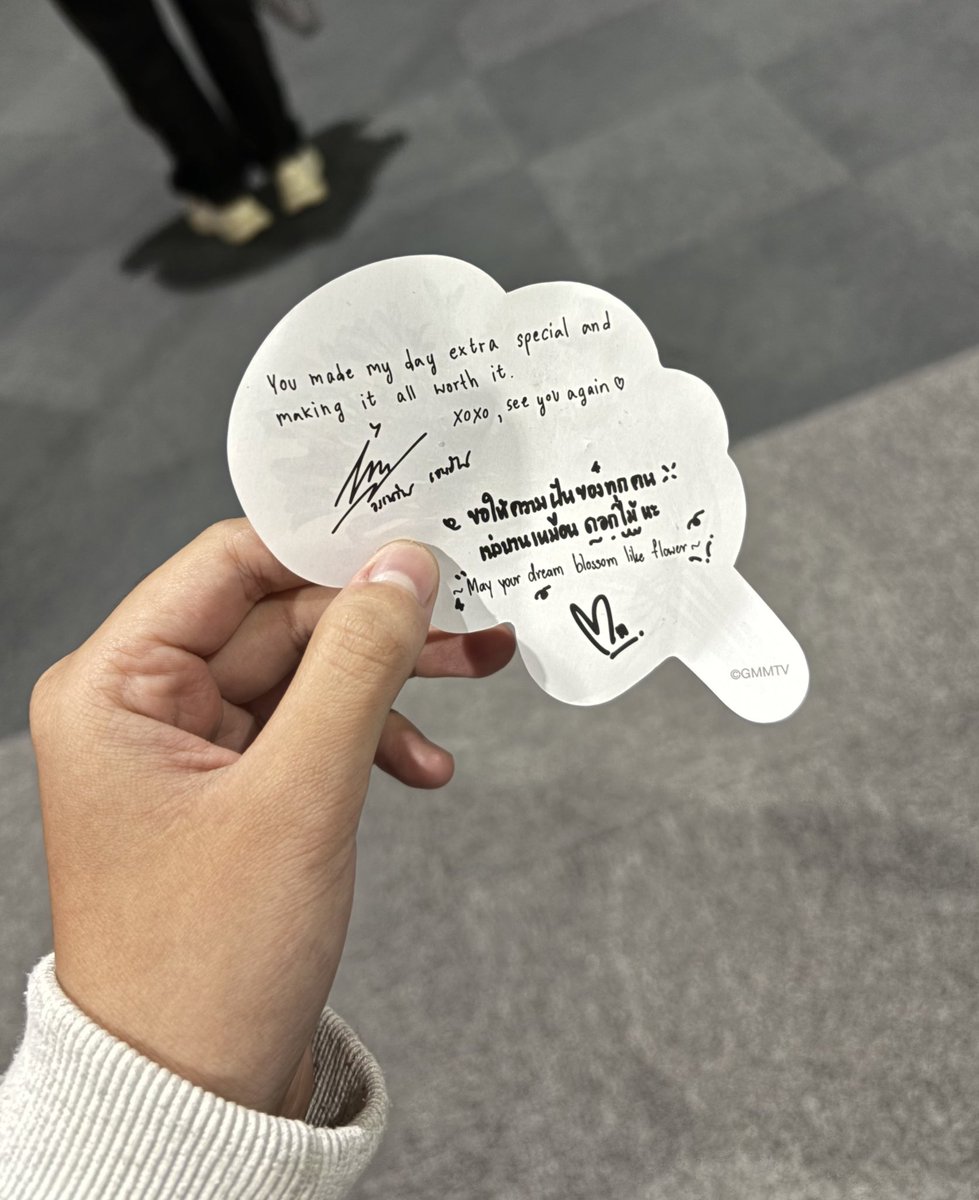 You made my day extra special and
making it all worth it.
xoxo, see you again ♡
ขอให้ความฝันของทุกคน
ผลิบานเหมือนดอกไม้นะ
~May your dream blossom like flower~
©GMMTV